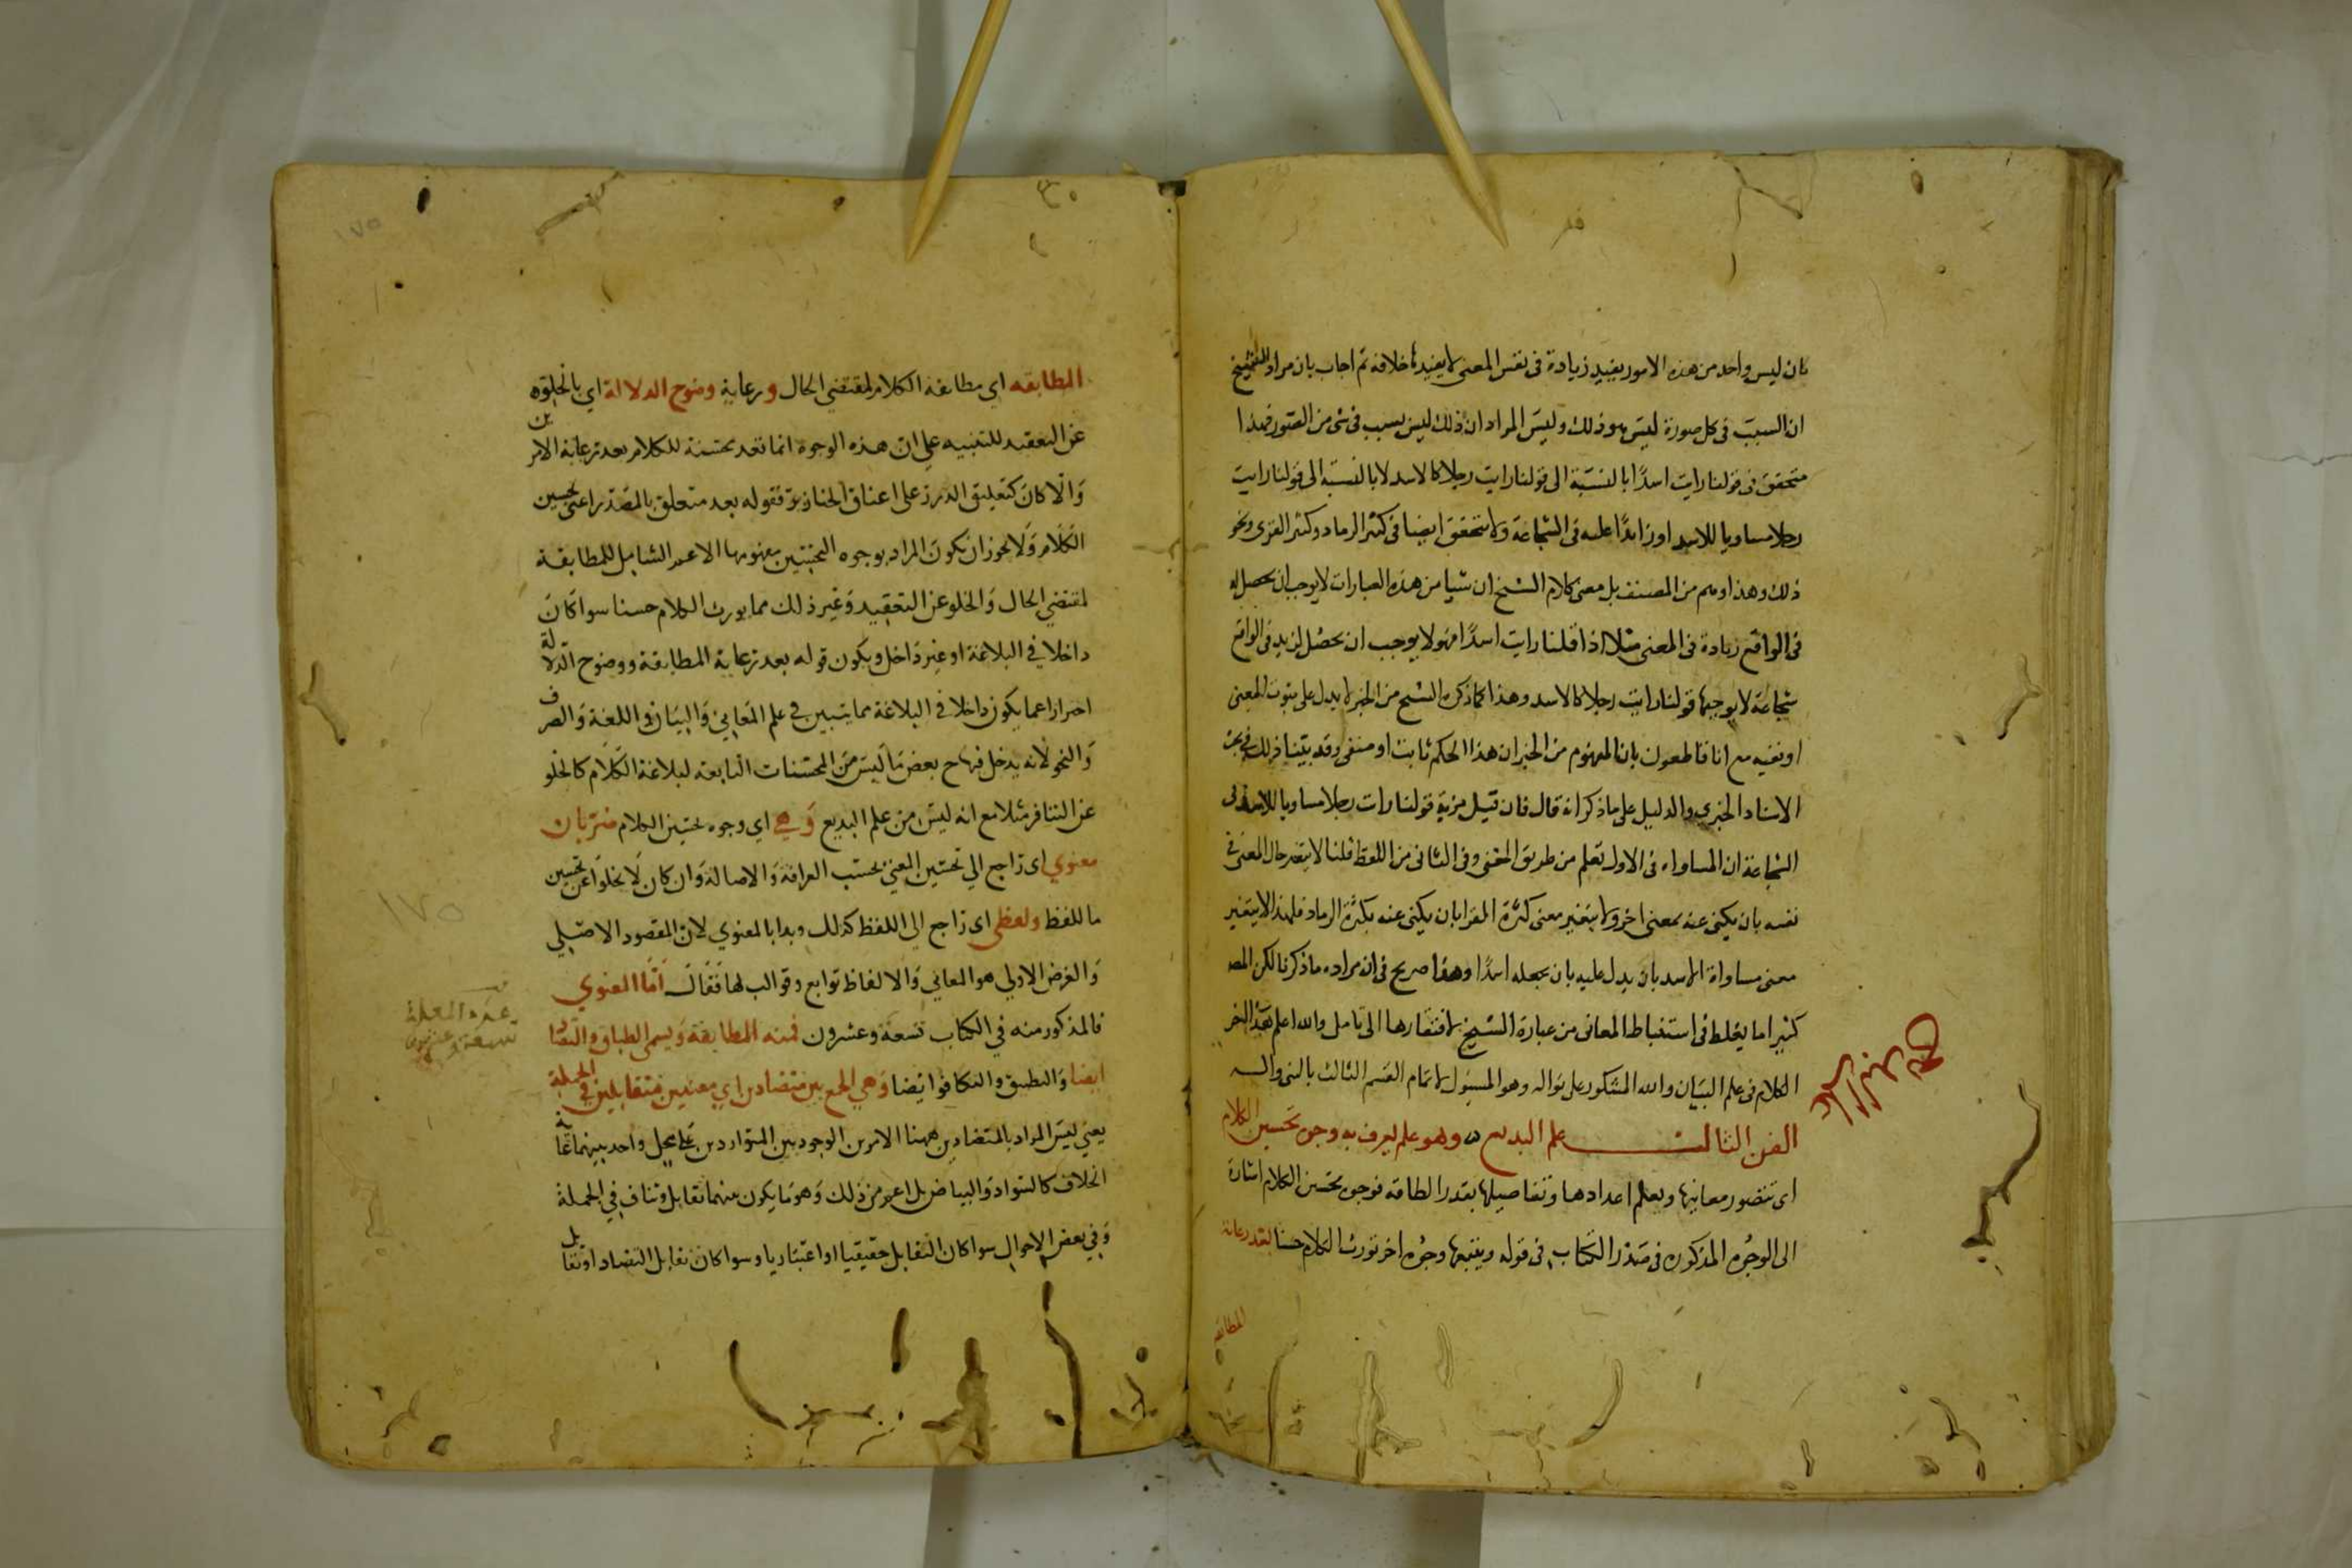 بان ليس واحد من هذه الامور يفيد زيادة فى نفس المعنى لا يفيدها خلافه ثم اجاب بان مراد الشيخ
ان السبب فى كل صورة ليس هو ذلك وليس المراد ان ذلك ليس بسبب فى شى من الصور فهذا
متحقق فى قولنا رايت اسدًا بالنسبة الى قولنا رايت رجلا كالاسد لا بالنسبة الى قولنا رايت
رجلا مساويا للاسد او زايدًا عليه فى الشجاعة ولا يتحقق ايضا فى كثير الرماد وكثير القرى ونحو
ذلك وهذا وهم من المصنف بل معنى كلام الشيخ ان شيا من هذه العبارات لا يوجب ان يحصل له
فى الواقع زيادة فى المعنى مثلا اذا قلنا رايت اسدًا فهو لا يوجب ان يحصل لزيد فى الواقع
شجاعة لا يوجبها قولنا رايت رجلا كالاسد وهذا كما ذكره الشيخ من الخبر لا يدل على ثبوت المعنى
او نفيه مع انا قاطعون بان المفهوم من الخبر ان هذا الحكم ثابت او منفى وقد بيّنا ذلك فى بحث
الاسناد الخبري والدليل على ما ذكرنا انه قال فان قيل مزية قولنا رايت رجلا مساويا للاسد فى
الشجاعة ان المساواه فى الاول تعلم من طريق المعنى وفى الثانى من اللفظ قلنا لا يتغير حال المعنى فى
نفسه بان يكنى عنه بمعنى اخر ولا يتغير معنى كثرة القرا بان يكنى عنه بكثرة الرماد فكهذا لا يتغير
معنى مساواة الاسد بان يدل عليه بان يجعله اسدًا وهذا صريح فى ان مراده ما ذكرنا لكن المصـ
كثيرا ما يغلط فى استنباط المعانى من عبارة الشيخ لافتقارها الى تامل والله اعلم هذا اخر
الكلام فى علم البيان والله المشكور على نواله وهو المسؤل لاتمام القسم الثالث بالنبى واله
الفن الثالث علم البديع وهو علم يعرف به وجوه تحسين الكلام
اى تتصور معانيها ويعلم اعدادها وتفاصيلها بقدر الطاقه فوجوه تحسين الكلام اشارة
الى الوجوه المذكوره فى صدر الكتاب فى قوله ويتبعها وجوه اخر تورث الكلام حسنا بعد رعاية
المطابقه
المطابقه اي مطابقة الكلام لمقتضي الحال ورعاية وضوح الدلالة اي بالخلوه
عن التعقيد للتنبيه علي ان هذه الوجوه انما تعد محسنة للكلام بعد رعاية الامرين
والا كان كتعليق الدرر على اعناق الخنازير فقوله بعد متعلق بالمصدر اعني تحسين
الكلام ولا يجوز ان يكون المراد بوجوه التحسين مفهومها الاعم الشامل للمطابقة
لمقتضي الحال والخلو عن التعقيد وغير ذلك مما يورث الكلام حسنا سوا كان
داخلا في البلاغة او غير داخل ويكون قوله بعد رعاية المطابقة ووضوح الدلالة
احترازا عما يكون داخلا في البلاغة مما يتبين في علم المعاني والبيان واللغة والصرف
والنحو لانه يدخل فيها ح بعض ما ليس من المحسنات التابعه لبلاغة الكلام كالخلو
عن التنافر مثلا مع انه ليس من علم البديع وهي اي وجوه تحسين الكلام ضربان
معنوي اى راجع الي تحسين المعني بحسب العراقة والاصالة وان كان لا يخلو عن تحسين
ما للفظ ولفظى اى راجع الي اللفظ كذلك وبدا بالمعنوي لان المقصود الاصلي
والغرض الاولي هو المعاني والالفاظ توابع وقوالب لها فقال اما المعنوي
فالمذكور منه في الكتاب تسعة وعشرون فمنه المطابقة ويسمى الطباق والتضاد
ايضا والتطبيق والتكافوا ايضا وهي الجمع بين متضادين اي معنيين متقابلين في الجملة
يعني ليس المراد بالمتضادين ههنا الامرين الوجوديين المتواردين على محل واحد بينهما غاية
الخلاف كالسواد والبياض بل اعم من ذلك وهو ما يكون بينهما تقابل وتناف في الجملة
وفي بعض الاحوال سوا كان التقابل حقيقيا او اعتباريا وسوا كان تقابل التضاد او تقابل
١٧٥
١٧٥